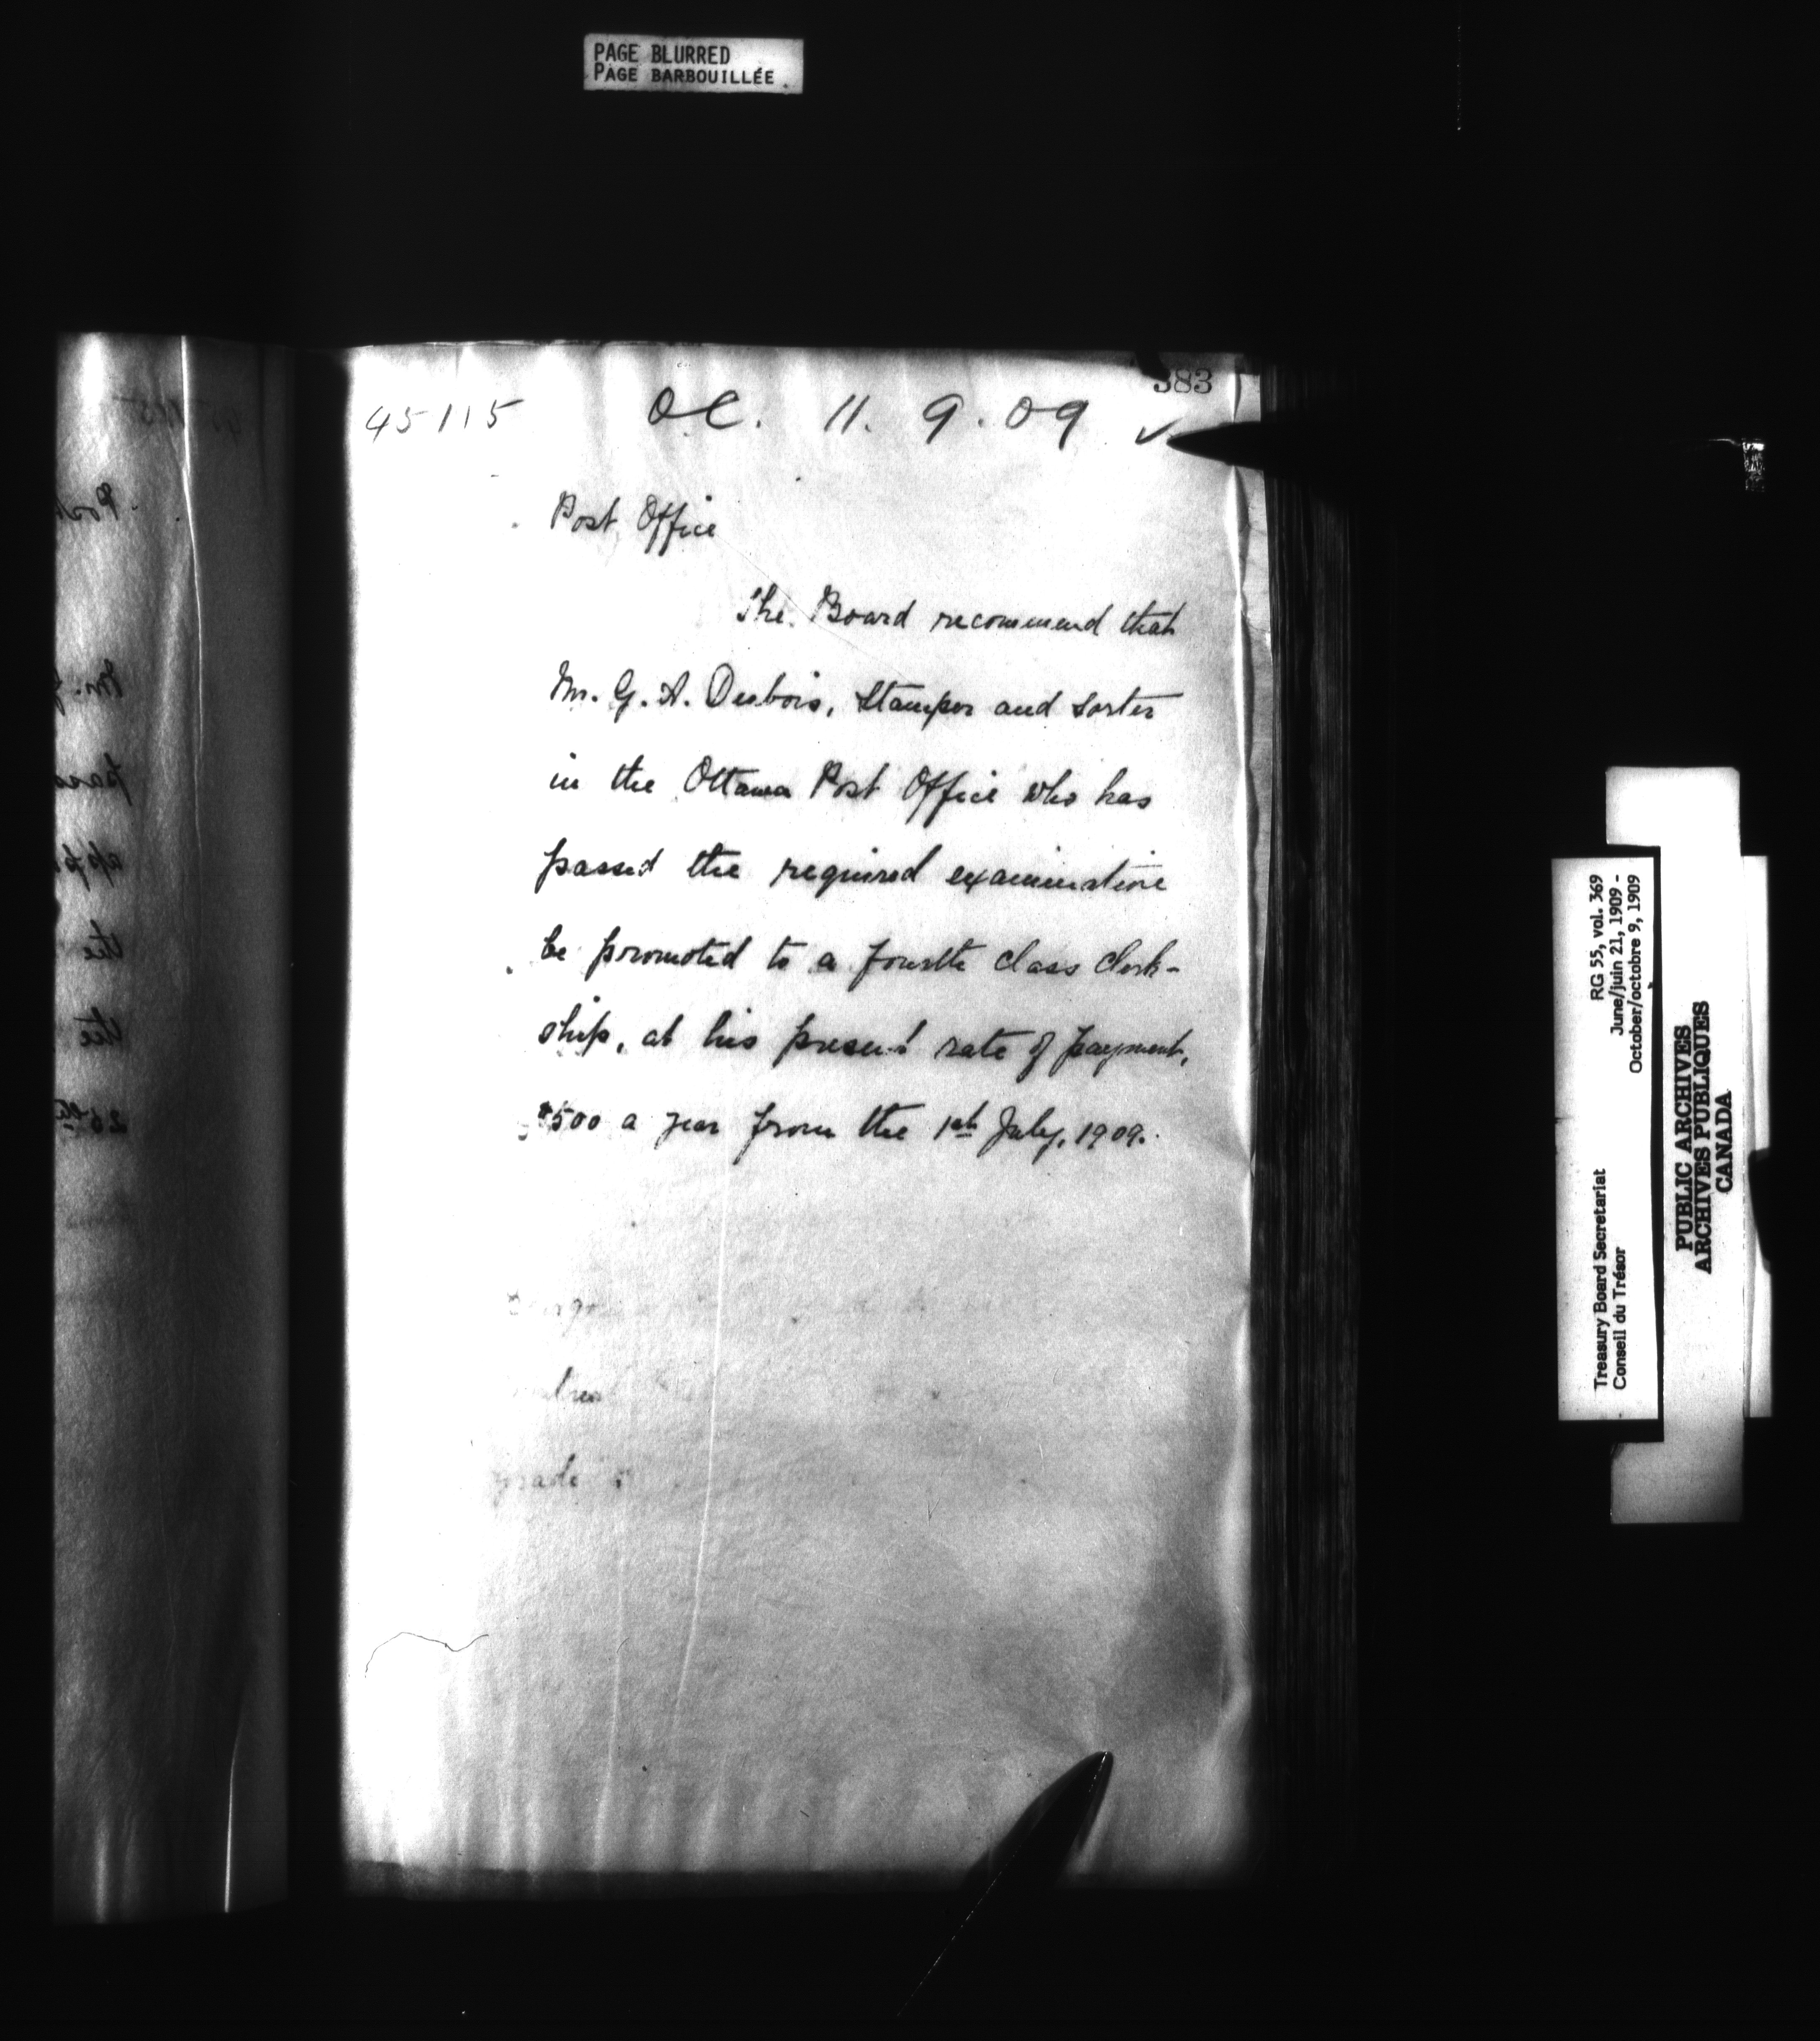 PAGE BLURRED
PAGE BARBOUILLÉE
383
45115 OC. 11. 9. 09 ✓
Post Office
The Board recommend that
Mr. G. A. Desbois, Stamper and sorter
in the Ottawa Post Office who has
passed the required examination
be promoted to a fourth class clerk-
ship, at his present rate of payment,
$500 a year from the 1st July, 1909.
grade
RG 55, vol. 369
June/juin 21, 1909 -
October/octobre 9, 1909
Treasury Board Secretariat
Conseil du Trésor
PUBLIC ARCHIVES
ARCHIVES PUBLIQUES
CANADA